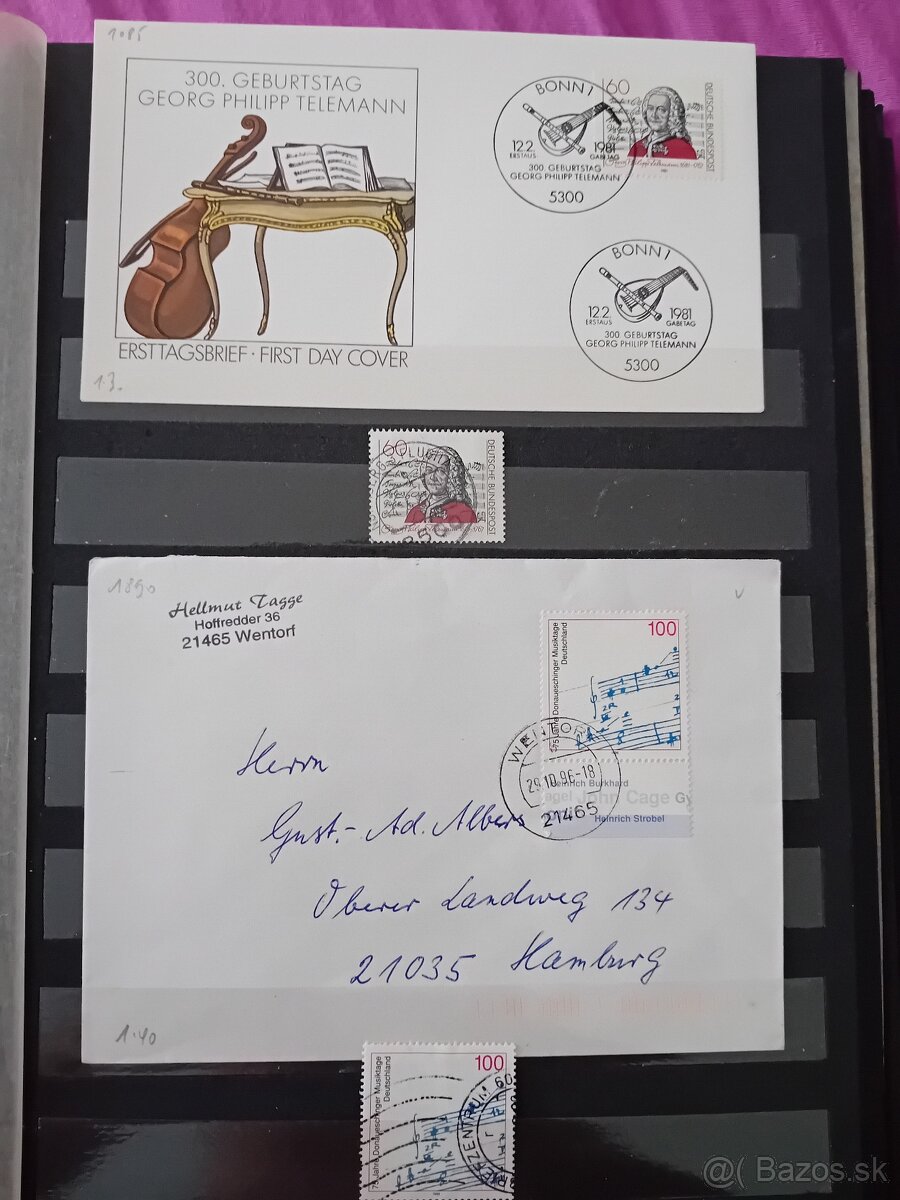 1085
300. GEBURTSTAG
GEORG PHILIPP TELEMANN
ERSTTAGSBRIEF · FIRST DAY COVER
1.3.
BONN 1
12.2. 1981
ERSTAUS GABETAG
300. GEBURTSTAG
GEORG PHILIPP TELEMANN
5300
60
DEUTSCHE BUNDESPOST
BONN 1
12.2. 1981
ERSTAUS GABETAG
300. GEBURTSTAG
GEORG PHILIPP TELEMANN
5300
60
DEUTSCHE BUNDESPOST
1890
v
Hellmut Tagge
Hoffredder 36
21465 Wentorf
100
75 Jahre Donaueschinger Musiktage
Deutschland
WENTORF
29.10.96-18
21465
Heinrich Burkhard
agel John Cage Gy
Heinrich Strobel
Herrn
Gust.- Ad. Albers
Oberer Landweg 134
21035 Hamburg
1.40
100
75 Jahre Donaueschinger Musiktage
Deutschland
ZENTRUM 60
@( Bazos.sk